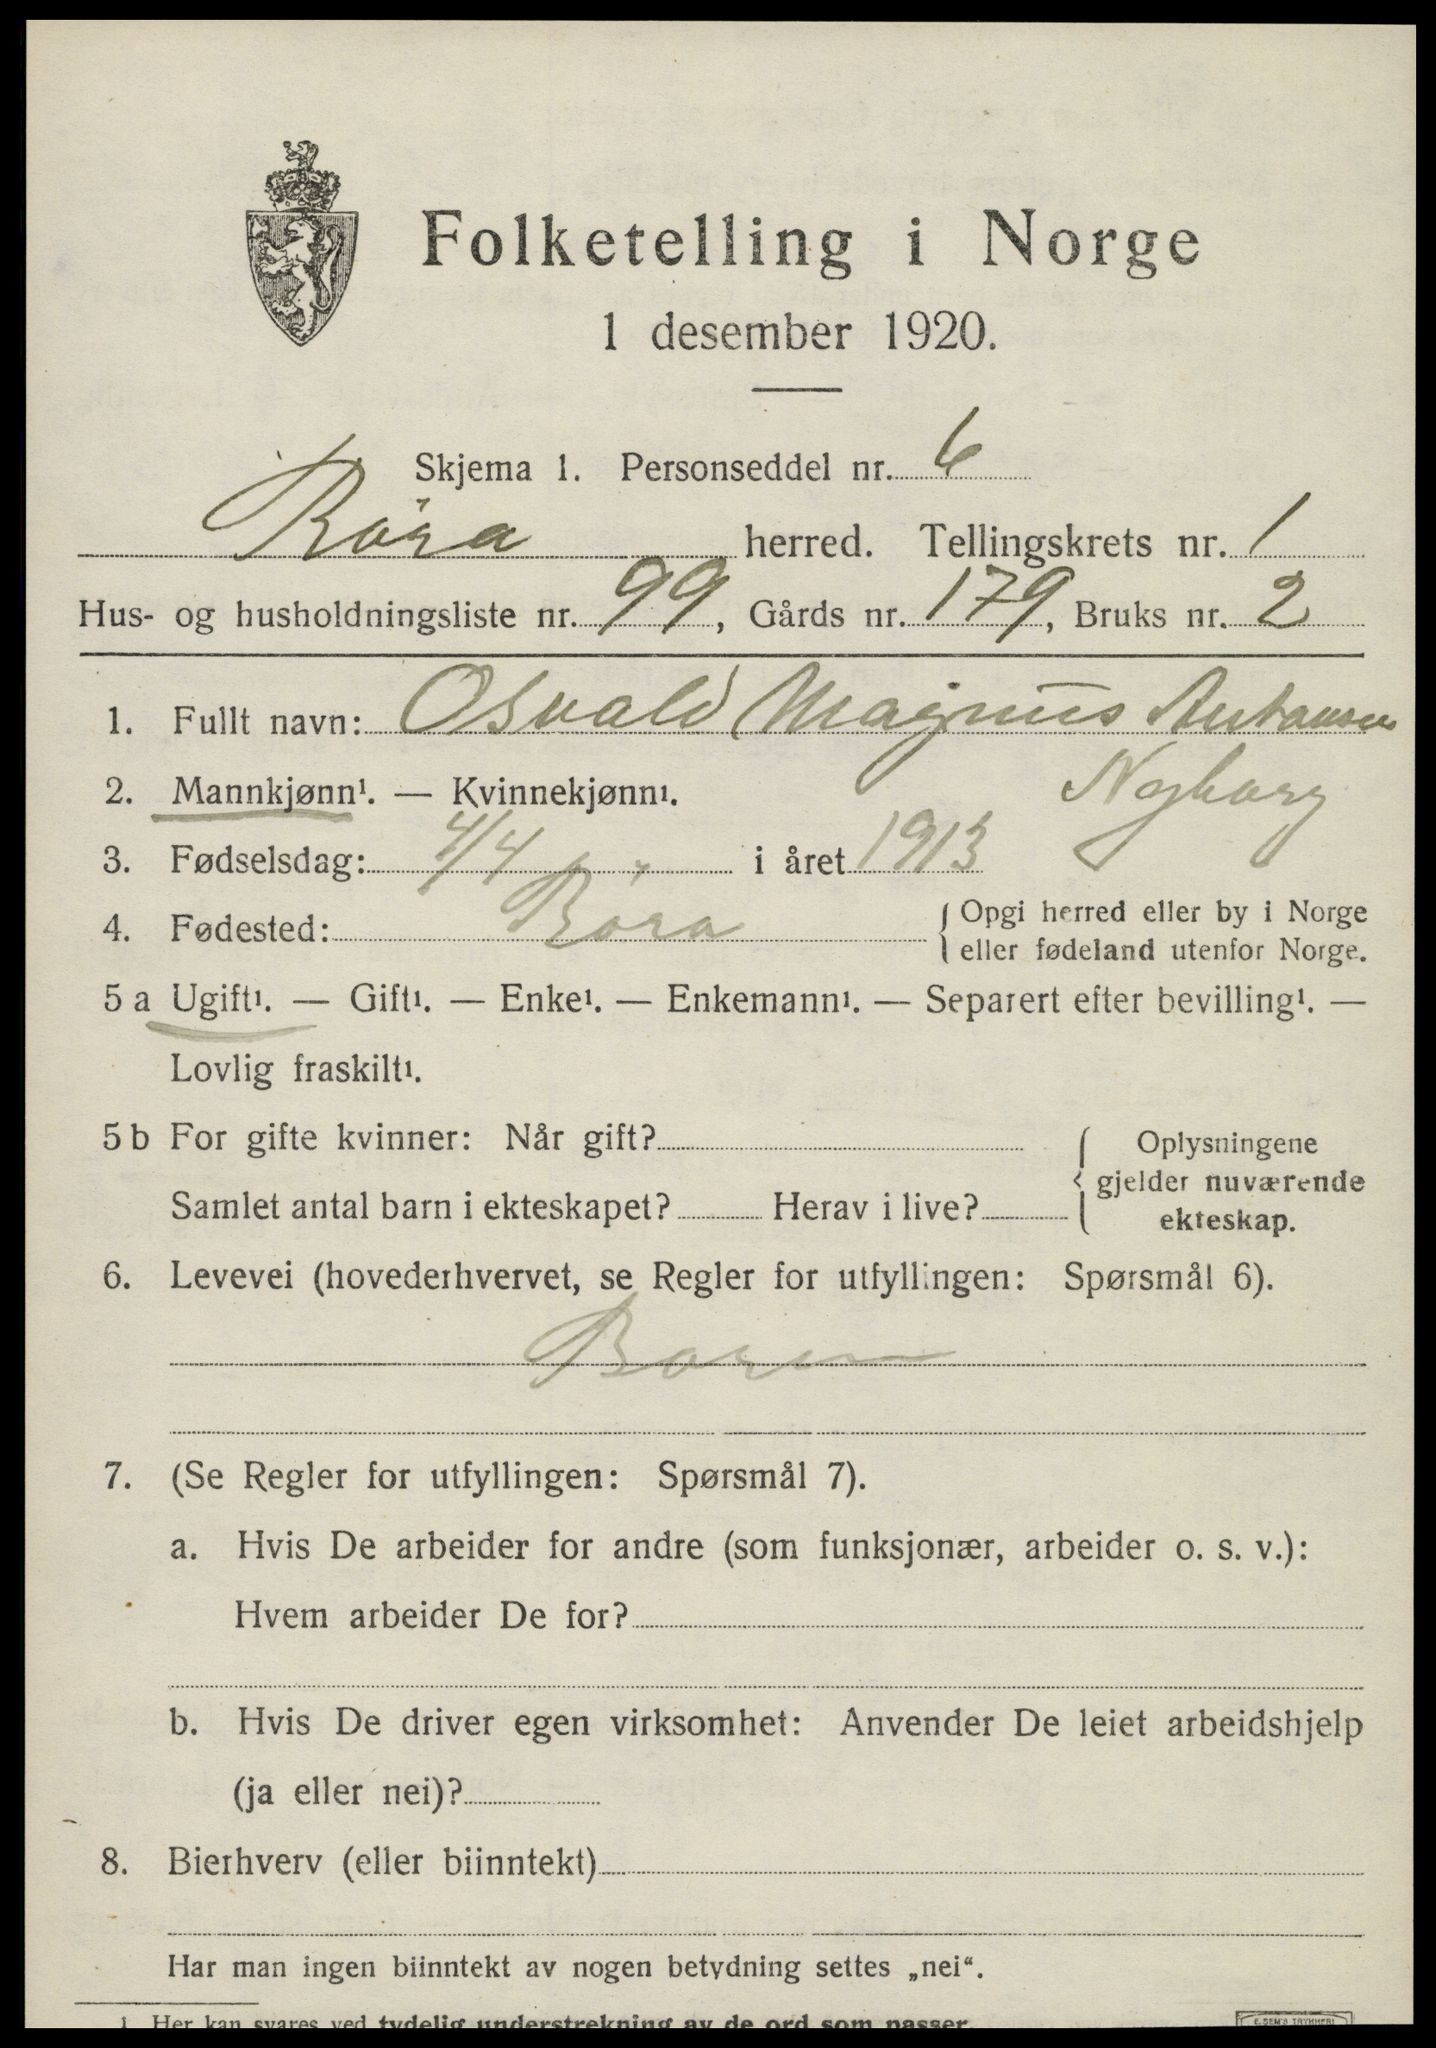 Folketelling i Norge
1 desember 1920.
Skjema 1. Personseddel nr. 6
Röra herred. Tellingskrets nr. 1
Hus- og husholdningsliste nr. 99, Gårds nr. 179, Bruks nr. 2
1. Fullt navn: Osvald Magnus Antonsen
Nyborg
2. Mannkjønn¹. — Kvinnekjønn¹.
3. Fødselsdag: 4/4 i året 1913
4. Fødested: Röra { Opgi herred eller by i Norge
eller fødeland utenfor Norge.
5 a Ugift¹. — Gift¹. — Enke¹. — Enkemann¹. — Separert efter bevilling¹. —
Lovlig fraskilt¹.
5 b For gifte kvinner: Når gift?
Samlet antal barn i ekteskapet? Herav i live?
{ Oplysningene
gjelder nuværende
ekteskap.
6. Levevei (hovederhvervet, se Regler for utfyllingen: Spørsmål 6).
Barn
7. (Se Regler for utfyllingen: Spørsmål 7).
a. Hvis De arbeider for andre (som funksjonær, arbeider o. s. v.):
Hvem arbeider De for?
b. Hvis De driver egen virksomhet: Anvender De leiet arbeidshjelp
(ja eller nei)?
8. Bierhverv (eller biinntekt)
Har man ingen biinntekt av nogen betydning settes „nei“.
1 Her kan svares ved tydelig understrekning av de ord som passer.
E. SEM'S TRYKKERI